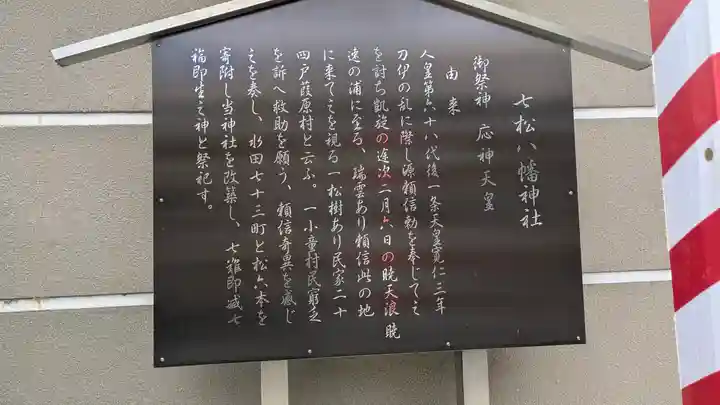 七松八幡神社
御祭神 応神天皇
由来
人皇第六十八代後一条天皇寛仁三年
刀伊の乱に際し源頼信勅を奉じて之
を討ち凱旋の途次二月六日の暁天浪暁
速の浦に至る、瑞雲あり頼信此の地
に来て之を視る一松樹あり民家二十
四戸葭原村と云ふ。一小童村民窮乏
を訴へ救助を願う、頼信奇異を感じ
之を奏し、水田七十三町と松六本を
寄附し当神社を改築し、七難即滅七
福即生之神と祭祀す。